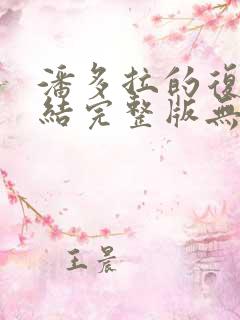 潘多拉的復
結完整版無
王晨